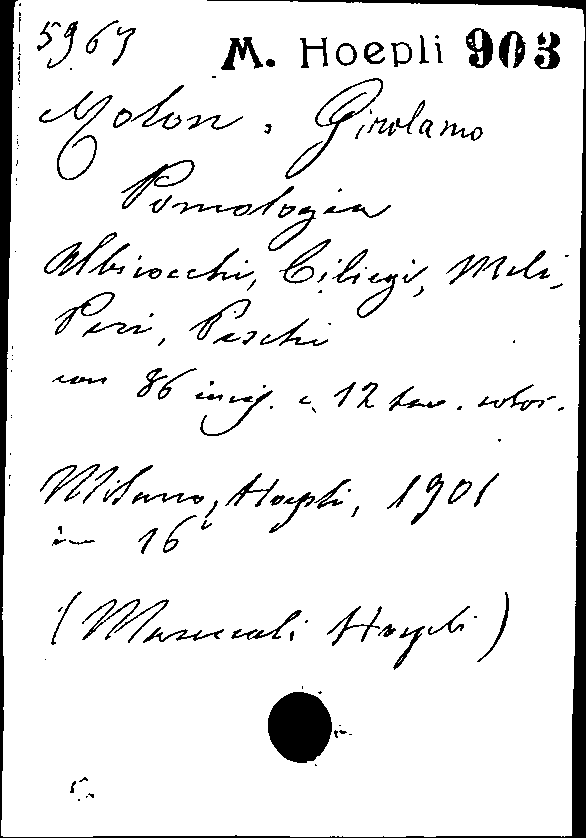 5967 M. Hoepli 903
Molon, Girolamo
Pomologia
Albicocchi, Ciliegi, Meli,
Peri, Peschi
con 86 incis. e 12 tav. color.
Milano, Hoepli, 1901
in 16°
(Manuali Hoepli)